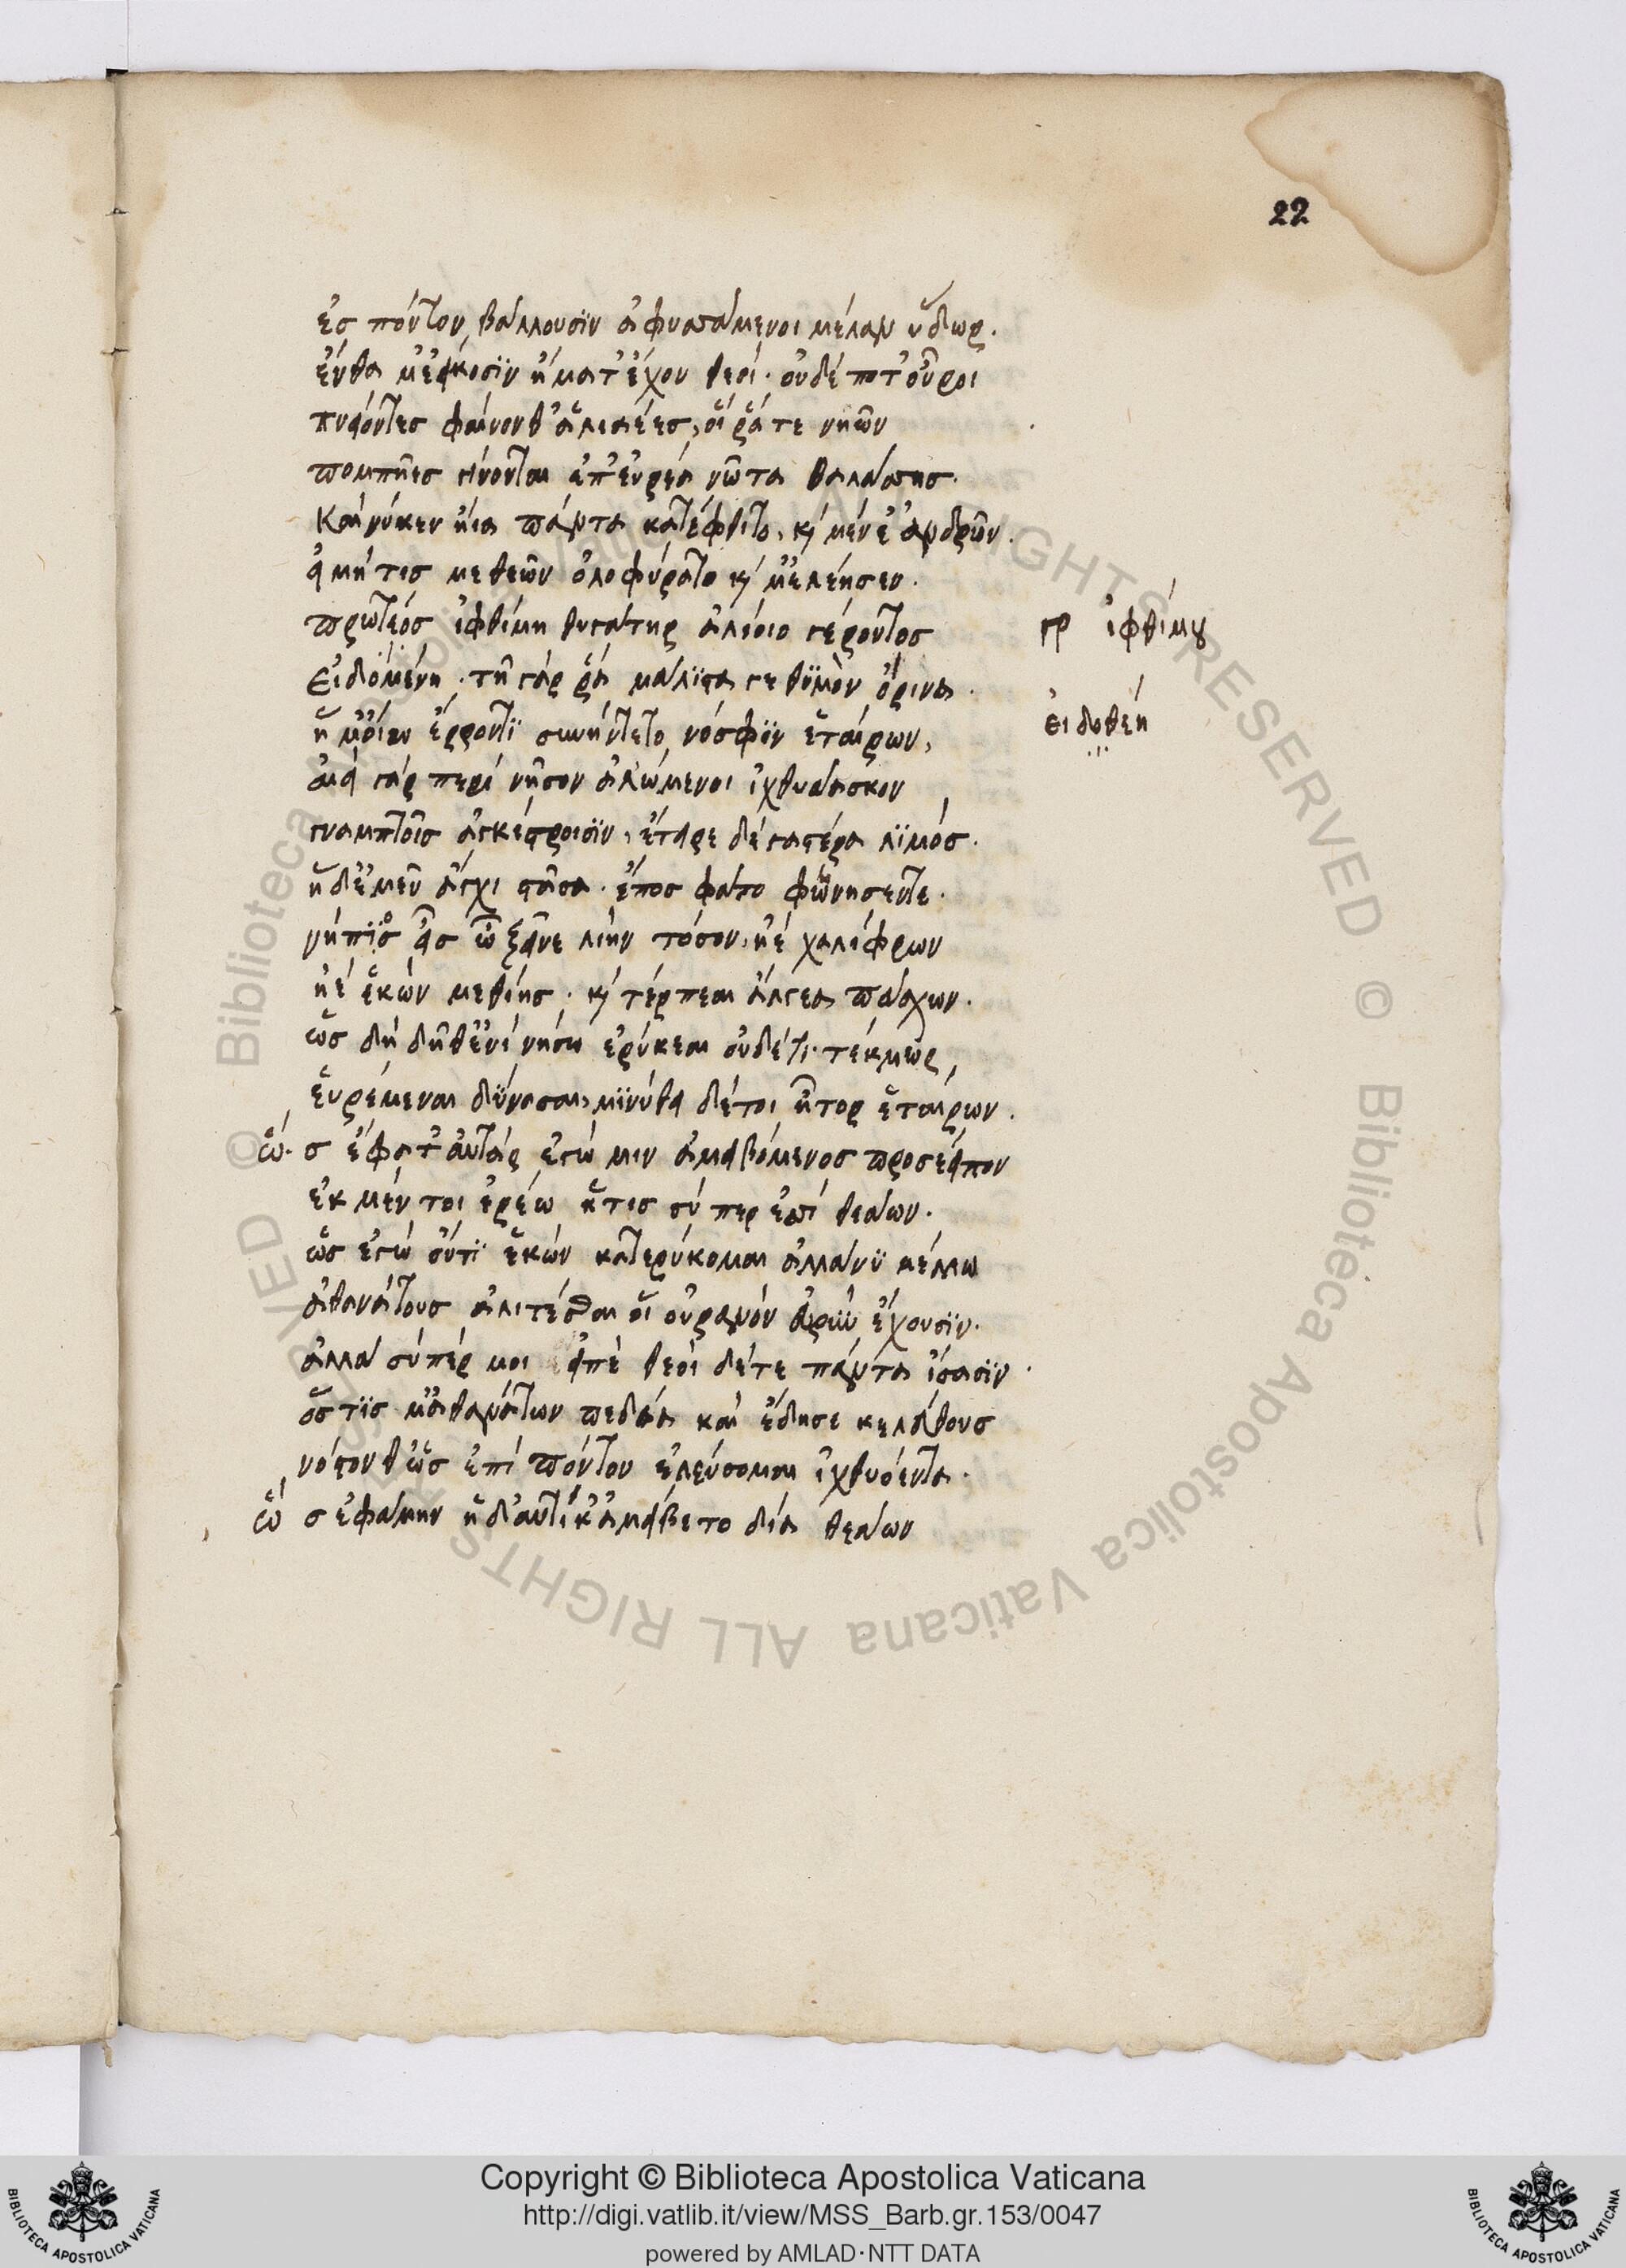 22
ἐς πόντον βάλλουσϊν ἀφυσσάμενοι μέλαν ὕδωρ.
ἔνθα μ'ἐείκοσϊν ἤματ' ἔχον θεοί. οὐδέ ποτ' οὖροι
πνείοντες φαίνονθ' ἁλιαέες, οἵ ῥά τε νηῶν
πομπῆες γίνονται ἐπ' εὐρέα νῶτα θαλάσσης.
Καί νύκεν ἤϊα πάντα κατέφθιτο, κ μένε' ἀνδρῶν.
εἰμή τις με θεῶν ὀλοφύρατο κ μ' ἐλέησεν.
πρωτέος ἰφθίμη θυγάτηρ ἁλίοιο γέροντος
γρ ἰφθίμου
Εἰδομένη. τῆ γάρ ῥά μάλϊστα γε θϋμὸν ὄρινα.
εἰδοθέη
ἥ μ' οἴω ἔρροντϊ συνήντετο νόσφϊν ἑταίρων,
αἰεί γάρ περί νῆσον ἀλώμενοι ἰχθυάασκον
γναμπτοῖς ἀγκίστροισϊν, ἔτειρε δέ γαστέρα λϊμός.
ἡ δέ μευ ἄγχι στᾶσα. ἔπος φάτο φώνησέντε.
νήπϊός εἰς ὦ ξεῖνε λίην τόσον, ἠέ χαλίφρων
ἠέ ἑκών μεθίης. κ τέρπεαι ἄλγεα πάσχων.
ὡς δή δῆθ' ἐνί νήσῳ ἐρύκεαι οὐδέτι τέκμωρ
εὑρέμεναι δϋνασαι, μϊνύθει δέτοι ἦτορ ἑταίρων.
ὥ. σ ἔφατ' αὐτάρ ἐγώ μιν ἀμειβόμενος προσέειπον
ἐκ μέν τοι ἐρέω ἥτις σύ περ ἐσσί θεάων.
ὡς ἐγώ οὔτϊ ἑκών κατερύκομαι ἀλλάνϋ μέλλω
ἀθανάτους ἀλιτέσθαι οἵ οὐρανόν εὐρύν ἔχουσϊν.
ἀλλά σύπέρ μοι εἰπέ θεοί δέτε πάντα ἴσασϊν.
ὅς τϊς μ' ἀθανάτων πεδάα καί ἔδησε κελεύθους
νόστονθ' ὡς ἐπί πόντον ἐλεύσομαι ἰχθυόεντα.
ὥ σ ἐφάμην ἡ δ' αὐτίκ' ἀμείβετο δῖα θεάων
Copyright © Biblioteca Apostolica Vaticana
http://digi.vatlib.it/view/MSS_Barb.gr.153/0047
powered by AMLAD·NTT DATA
BIBLIOTECA APOSTOLICA VATICANA
BIBLIOTECA APOSTOLICA VATICANA
© Biblioteca Apostolica Vaticana ALL RIGHTS RESERVED © Biblioteca Apostolica Vaticana ALL RIGHTS RESERVED